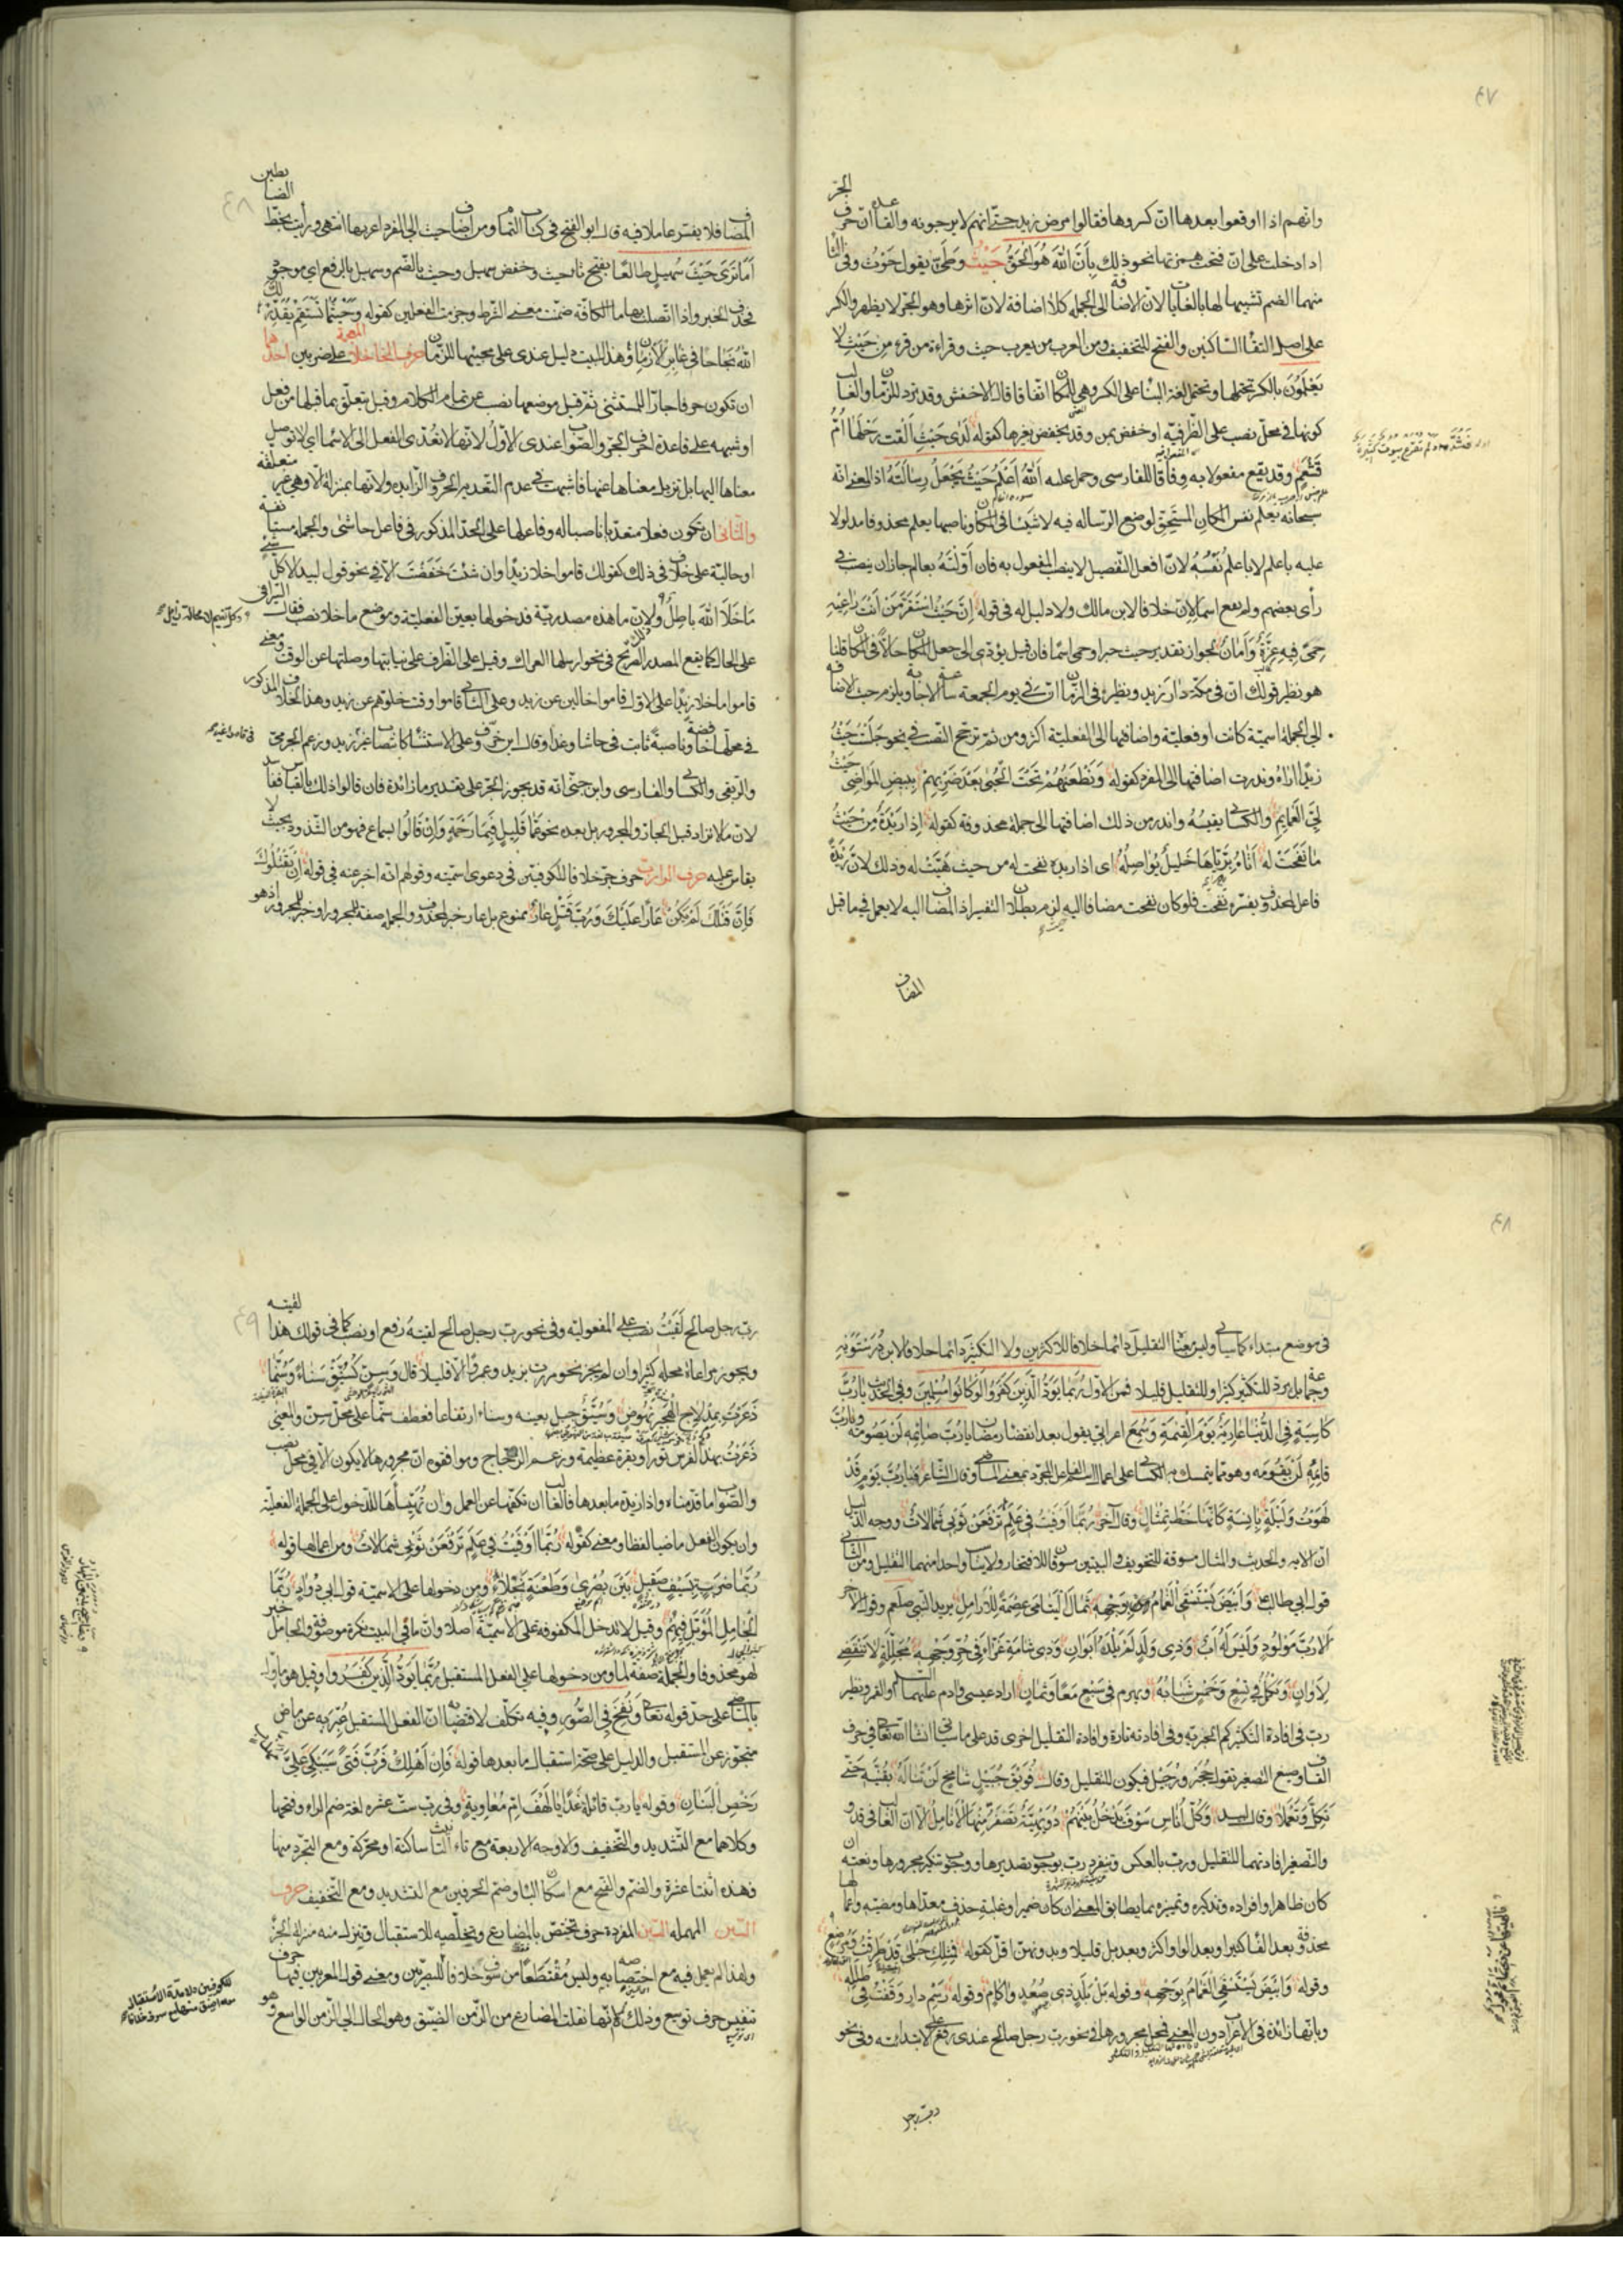 ٤٧
وانهم اذا اوقعوا بعدها انّ كسروها فقالوا مرض زيد حتّى انهم لا يرجونه والقاعدة انّ حرف الجرّ
اذا دخلت على انّ فتحت همزتها نحو ذلك بِأَنَّ اللهَ هُوَ الْحَقُّ حَيْثُ وطيّ يقول حَوْثُ وفي الثا
منهما الضم تشبيها لها بالغايات لانّ الاضافة الى الجملة كلا اضافة لانّ اثرها وهو الجرّ لا يظهر والكسر
على اصل التقاء الساكنين والفتح للتخفيف ومن العرب من يعرب حيث وقراءة من قرء مِنْ حَيْثِ لَا
يَعْلَمُونَ بالكسر تحتملها وتحتمل لغة البناء على الكسر وهي للمكان اتفاقا قال الاخفش وقد ترد للزمان والغالب
كونها في محلّ نصب على الظرفيّة او خفض بمن وقد يخفض بغيرها كقوله لَدَى حَيْثُ اَلْقَتْ رَحْلَهَا اُمُّ
قَشْعَمِ وقد يقع مفعولا به وِفاقا للفارسى وحمل عليه اَللهُ اَعْلَمُ حَيْثُ يَجْعَلُ رِسَالَتَهُ اذ المعنى انّه
سبحانه يعلم نفس المكان المستحِقّ لوضع الرّسالة فيه لا شيئا في المكان وناصبها يعلم محذوفا مدلولا
عليه باعلم لا باعلمُ نَفْسُهُ لانّ افعل التفضيل لا ينصب المفعول به فان اَوَّلْتَهُ بعالم جاز ان ينصبه في
رأى بعضهم ولم يقع اسمًا لانّ خلافا لابن مالك ولا دليل له في قوله اِنَّ حَيْثُ اسْتَقَرَّ مَنْ اَنْتَ رَاعِيْهِ
حِمًى فِيْهِ عِزَّةٌ وَاَمَانُ لجواز تقدير حيث خبرا وحمى اسما فان قيل يؤدّى الى جعل المكان حالاّ في المكان قلنا
هو نظير قولك انّ في مكّة دارَ زيد ونظيره في الزّمان انّ في يوم الجمعة ساعة الاجابة ويلزم حيث الاضافة
الى الجملة اسميّة كانت او فعليّة واضافتها الى الفعليّة اكثر ومن ثمّ ترجّح النصب في نحو جَلَسْتُ حَيْثُ
زيدًا اراه وندرت اضافتها الى المفرد كقوله وَنَطْعَنُهُمْ تَحْتَ الْحُبَى بَعْدَ ضَرْبِهِمْ بِبِيضِ الْمَوَاضِى حَيْثُ
لَيِّ الْعَمَائِمِ والكسائى يقيسُهُ واندر من ذلك اضافتها الى جملة محذوفة كقوله اِذَا رَيْدَةٌ مِنْ حَيْثُ
مَا نَفَحَتْ لَهُ اَتَاهُ بِرَيَّاهَا خَلِيلٌ يُوَاصِلُهْ اى اذا ريدة نفحت له من حيث هَبَّتْ له وذلك لانّ رَيْدَةٌ
فاعل لمحذوف يفسّره نفحت فلو كان نفحت مضافا اليه لزم بطلان التفسير اذ المضاف اليه لا يعمل فيما قبل
المضاف
٤٨
المضاف فلا يفسّر عاملا فيه قال ابو الفتح في كتاب التمام ومن اضاف حيث الى المفرد اعربها انتهى ورأيت بخطّ الضابطين
اَمَا تَرَى حَيْثَ سُهَيْلٍ طالعًا بفتح ثاء حيث وخفض سهيل وحيث بالضّم وسهيل بالرفع اى موجودٌ
فحذف الخبر واذا اتّصلت بها ما الكافّة ضمّنت معنى الشرط وجزمت الفعلين كقوله وَحَيْثُمَا تَسْتَقِمْ يُقَدِّرْ لَكَ
اللهُ نَجَاحًا فِى غَابِرِ الْاَزْمَانِ وهذا البيت دليل عندى على مجيئها للزّمان حرف الخاء المعجمة خلا على ضربين احدهما
ان تكون حرفا جارّا للمستثنى ثمّ قيل موضعها نصب عن تمام الكلام وقيل يتعلّق بما قبلها من فعل
او شبهه على قاعدة احرف الجرّ والصّواب عندى الاوّلُ لانّها لا تُعَدّى الفعل الى الاسماء اى لا توصل
معناها اليها بل تزيل معناها عنها فاشبهت في عدم التعدية الحروف الزّايدة ولانّها بمنزلة الّا وهى غير متعلّقة
والثانى ان تكون فعلا متعدّيا ناصبا له وفاعلها على الحدّ المذكور في فاعل حاشى والجملة مستأنفة
او حاليّة على خلاف في ذلك كقولك قاموا خلا زيدًا وان شئت خَفَضْتَ الّا في نحو قول لبيد اَلَا كُلُّ شَيْئٍ
مَا خَلَا اللهَ بَاطِلُ ولانّ ما هذه مصدريّة فدخولها يعيّن الفعليّة وموضع ما خلا نصب فقال السيرافى
على الحال كما يقع المصدر الصّريح في نحو ارسلها العراك وقيل على الظرف على نيابتها وصلتها عن الوقت فمعنى
قاموا ما خلا زيدًا على الاوّل قاموا خالين عن زيد وعلى الثانى قاموا وقت خلوّهم عن زيد وهذا الخلاف المذكور
في محلّها خافضة وناصبة ثابت في حاشا وعدا وقال ابن خروف على الاستثناء كانتصاب غير زيد وزعم الجرمىّ
والرّبعى والكسائى والفارسى وابن جنّى انّه قد يجوز الجرّ على تقدير ما زائدة فان قالوا ذلك بالقياس ففاسد
لانّ ما لا تزاد قبل الجارّ والمجرور بل بعده نحو عَمَّا قَلِيلٍ فَبِمَا رَحْمَةٍ وَاِنْ قَالُوا بسماع فهو من الشّذوذ بحيث لا
يقاس عليه حرف الراء ربّ حرف جرّ خلافا للكوفيّين في دعوى اسميّته وقولهم انّه اخبر عنه في قوله اِنْ يَقْتُلُوكَ
فَاِنَّ قَتْلَكَ لَمْ يَكُنْ عَارًا عَلَيْكَ وَرُبَّ قَتْلٍ عَارُ ممنوع بل عار خبر لمحذوف والجملة صفة للمجرور او خبر للمجرور اذ هو
٤٨
في موضع مبتداء كما سيأتى وليس معناها التقليل دائما خلافا للاكثرين ولا التكثير دائما خلافا لابن دُرُسْتَوَيْهِ
وجماعة بل يرد للتكثير كثيرا وللتقليل قليلا فمن الاوّل رُبَمَا يَوَدُّ الَّذِينَ كَفَرُوا لَوْ كَانُوا مُسْلِمِينَ وفي الحديث يا رُبَّ
كَاسِيَةٍ فِى الدُّنْيَا عَارِيَةٌ يَوْمَ الْقِيٰمَةِ وَسُمِعَ اعرابىّ يقول بعد انقضاء رمضان يا رُبَّ صَائِمِهِ لَنْ يَصُومَهُ وَيَا رُبَّ
قَائِمِهِ لَنْ يَقُومَه وهو ممّا يتمسّك به الكسائى على اعمال اسم الفاعل المجرّد بمعنى الماضى وقال الشّاعر فَيَا رُبَّ يَوْمٍ قَدْ
لَهَوْتُ وَلَيْلَةٍ بِآنِسَةٍ كَاَنَّهَا خَطُّ تِمْثَالِ وقال آخر رُبَّمَا اَوْفَيْتُ فِى عَلَمٍ تَرْفَعَنْ ثَوْبِى شَمَالَاتُ ووجه الدليل
انّ الآية والحديث والمثال مسوقة للتخويف والبيتين مسوقان للافتخار ولا يناسب واحدا منهما التقليل ومن الثّانى
قول ابى طالب وَاَبْيَضَ يُسْتَسْقَى الْغَمَامُ بِوَجْهِهِ ثِمَالَ الْيَتَامَى عِصْمَةً لِلْاَرَامِلِ يريد النبى صلعم وقول الآخر
اَلَا رُبَّ مَوْلُودٍ وَلَيْسَ لَهُ اَبٌ وَذِى وَلَدٍ لَمْ يَلْدَهُ اَبَوَانِ وَذِى شَامَةٍ غَرَّاءَ فِى حُرِّ وَجْهِهِ مُجَلَّلَةٍ لَا تَنْقَضِى
لِاَوَانِ وَتَكْمُلُ فِى تِسْعٍ وَخَمْسٍ شَبَابُهُ وَيَهْرَمُ فِى سَبْعٍ مَعًا وَثَمَانِ اراد عيسى وادم عليهما السلام والقمر ونظير
ربّ في افادة التكثير كم الخبريّة وفي افادته تارة وافادة التقليل اخرى قد على ما سيأتى انشاء الله تعا في حرف
القاف وصيغ التصغير تقول حُجَيْرٌ ورُجَيْل فيكون للتقليل وقال فُوَيْقَ جُبَيْلٍ شَامِخٍ لَنْ تَنَالَهُ بِقُنَّتِهِ حَتَّى
تَكِلَّ وَتَعْمَلَا وقال لبيد وَكُلُّ اُنَاسٍ سَوْفَ تَدْخُلُ بَيْنَهُمْ دُوَيْهِيَّةٌ تَصْفَرُّ مِنْهَا الْاَنَامِلُ الّا انّ الغالب في قد
والتصغير افادتهما للتقليل وربّ بالعكس وتنفرد ربّ بوجوب تصديرها ووجوب تنكير مجرورها ونعته ان
كان ظاهرا وافراده وتذكيره وتمييزه بما يطابق المعنى ان كان ضميرا وغلبة حذف معدّاها ومضيّه واعمالها
محذوفة بعد الفاء كثيرا وبعد الواو اكثر وبعد بل قليلا وبدونهنّ اقلّ كقوله فَمِثْلِكِ حُبْلَى قَدْ طَرَقْتُ وَمُرْضِعٍ
وقوله وَاَبْيَضَ يُسْتَسْقَى الْغَمَامُ بِوَجْهِهِ وقوله بَلْ بَلَدٍ ذِى صُعُدٍ وَآكَامْ وقوله رَسْمِ دَارٍ وَقَفْتُ فِى طَلَلِهْ
وبانّها زائدة في الاعراب دون المعنى فمحلّ مجرورها في نحو ربّ رجل صالح عندى رفع على الابتدائيّة وفي نحو
ربّ رجل
٤٩
ربّ رجل صالح لَقِيْتُ نصب على المفعوليّة وفي نحو ربّ رجل صالح لقيتهُ رفع او نصب كما في قولك هذا لقيته
ويجوز مراعاة محلّه كثيرا وان لم يجز نحو مررت بزيد وعمرًا الّا قليلا قال وَسِنٍّ كَسُنَّيْقٍ سَنَاءً وَسُنَّمًا
ذَعَرْتُ بِمِدْلَاجِ الْهَجِيرِ نَهُوضِ وسُنَّيْق جبل بعينه وسناء ارتفاعا فعطف سنّما على محلّ سنّ والمعنى
ذَعَرْتُ بهذا الفرس ثورا وبقرة عظيمة وزعم الزّجّاج وموافقوه ان مجرورها لا يكون الّا في محلّ نصب
والصّواب ما قدّمناه واذا زيدت ما بعدها فالغالب ان تكفّها عن العمل وان تُهَيِّئَها للدّخول على الجملة الفعليّة
وان يكون الفعل ماضيا لفظا ومعنى كقوله رُبَّمَا اَوْفَيْتُ فِى عَلَمٍ تَرْفَعَنْ ثَوْبِى شَمَالَاتُ ومن اعمالها قوله
رُبَّمَا ضَرْبَةٍ بِسَيْفٍ صَقِيلٍ بَيْنَ بُصْرَى وَطَعْنَةٍ نَجْلَاءِ ومن دخولها على الاسميّة قول ابى دُوَادٍ رُبَّمَا
الْجَامِلِ الْمُؤَبَّلِ فِيهِمْ وقيل لا تدخل المكفوفة على الاسميّة اصلا وانّ ما في البيت نكرة موصوفة والجامل خبر
لهو محذوفا والجملة صفة لما ومن دخولها على الفعل المستقبل رُبَمَا يَوَدُّ الَّذِينَ كَفَرُوا وقيل هو مأوّل
بالماضى على حدّ قوله تعا وَنُفِخَ فِى الصُّورِ وفيه تكلّف لاقتضائه انّ الفعل المستقبل عُبّر به عن ماض
متجوّز عن المستقبل والدليل على صحّة استقبال ما بعدها قوله فَاِنْ اَهْلِكْ فَرُبَّ فَتًى سَيَبْكِى عَلَيَّ
رَخْصِ الْبَنَانِ وقوله يا ربّ قائلة غَدًا يَا لَهْفَ اُمِّ مُعَاوِيَةِ وفي ربّ ستّ عشرة لغة ضم الراء وفتحها
وكلاهما مع التّشديد والتّخفيف والاوجه الاربعة مع تاء التانيث ساكنة او محرّكة ومع التجرّد منها
فهذه اثنتا عشرة والضّم والفتح مع اسكان الباء وضمّ الحرفين مع التشديد ومع التّخفيف حرف
السّين المهملة السّين المفردة حرف تختصّ بالمضارع وتخلّصه للاستقبال وتنزّل منه منزلة الجزء
ولهذا لم يعمل فيه مع اختصاصه به وليس مُقْتَطَعًا من سوف خلافا للبصرّيين ومعنى قول المعربين فيها حرف
تنفيس حرف توسيع وذلك لانّها نقلت المضارع من الزّمن الضيّق وهو الحال الى الزّمن الواسع وهو